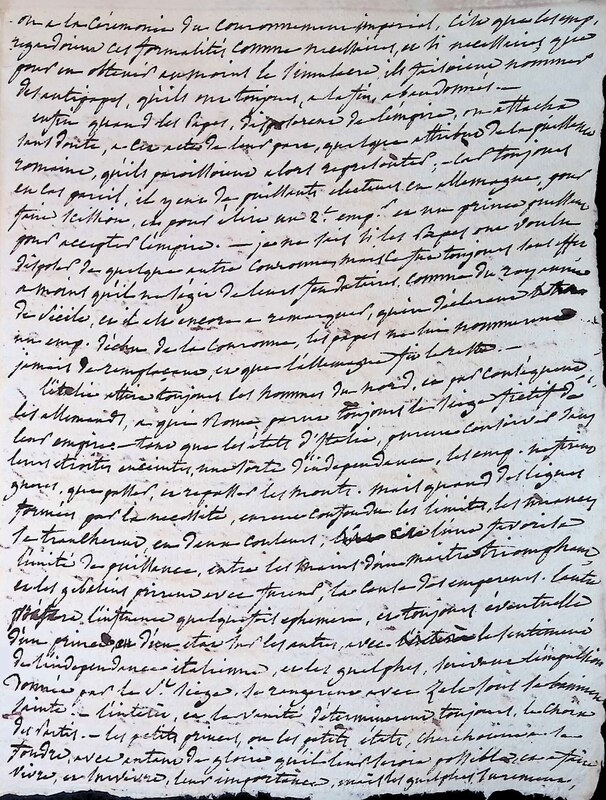 ou a la Cérémonie du couronnement imperial, c'est que les emp.
regardoient ces formalités comme necessaires, et si necessaires, que
pour en obtenir au moins le simulacre, ils faisoient nommer
des antipapes, qu'ils ont toujours, a la fin, abandonnés. —
enfin quand des Papes, disposerent de l'empire, on attacha
sans doute, a cet acte de leur part, quelque attribut de la puissance
romaine, qu'ils paroissoient alors representer, — car toujours
en cas pareil, il y eut de puissants electeurs en allemagne, pour
faire scission, et pour élire un 2e emp. et un prince puissant
pour accepter l'empire. — je ne sais si les Papes ont voulu
disposer de quelque autre Couronne, mais ce fut toujours sans effet
a moins qu'il ne s'agit de leurs feudataires, comme du roy
de Sicile, et il est encore a remarquer, qu'en declarant
un emp. déchu de la Couronne, les papes ne lui nommerent
jamais de remplacant, et que l'allemagne fit le reste. —
l'italie attire toujours les hommes du nord, et par consequent
les allemands, a qui Rome parut toujours le siege
leur empire. tant que les états d'Italie, purent conserver dans
leurs étroites enceintes, une sorte d'independance, les emp. ne firent
gueres, que passer, et repasser les monts. mais quand des ligues
formées par la necessité, eurent confondu les limites, les nuances
se trancherent en deux couleurs,
l'unité de puissance, entre les mains d'un maitre triomphant,
et les gibelins prirent avec fureur, la cause des empereurs. l'autre
l'influence quelquefois ephemere, et toujours éventuelle
d'un prince ou d'un état sur les autres, avec le sentiment
de l'independance italienne, et les guelphes, suivant l'impulsion
donnée par le St. Siege, se rangerent avec zele sous la banniere
sainte. — l'interet, et la vanité, determinerent, toujours, le choix
des partis. — les petits princes, ou les petits états, cherchoient a se
fondre, avec autant de gloire qu'il leur seroit possible, et a faire
vivre, et survivre, leur importance, mais les guelphes, furent